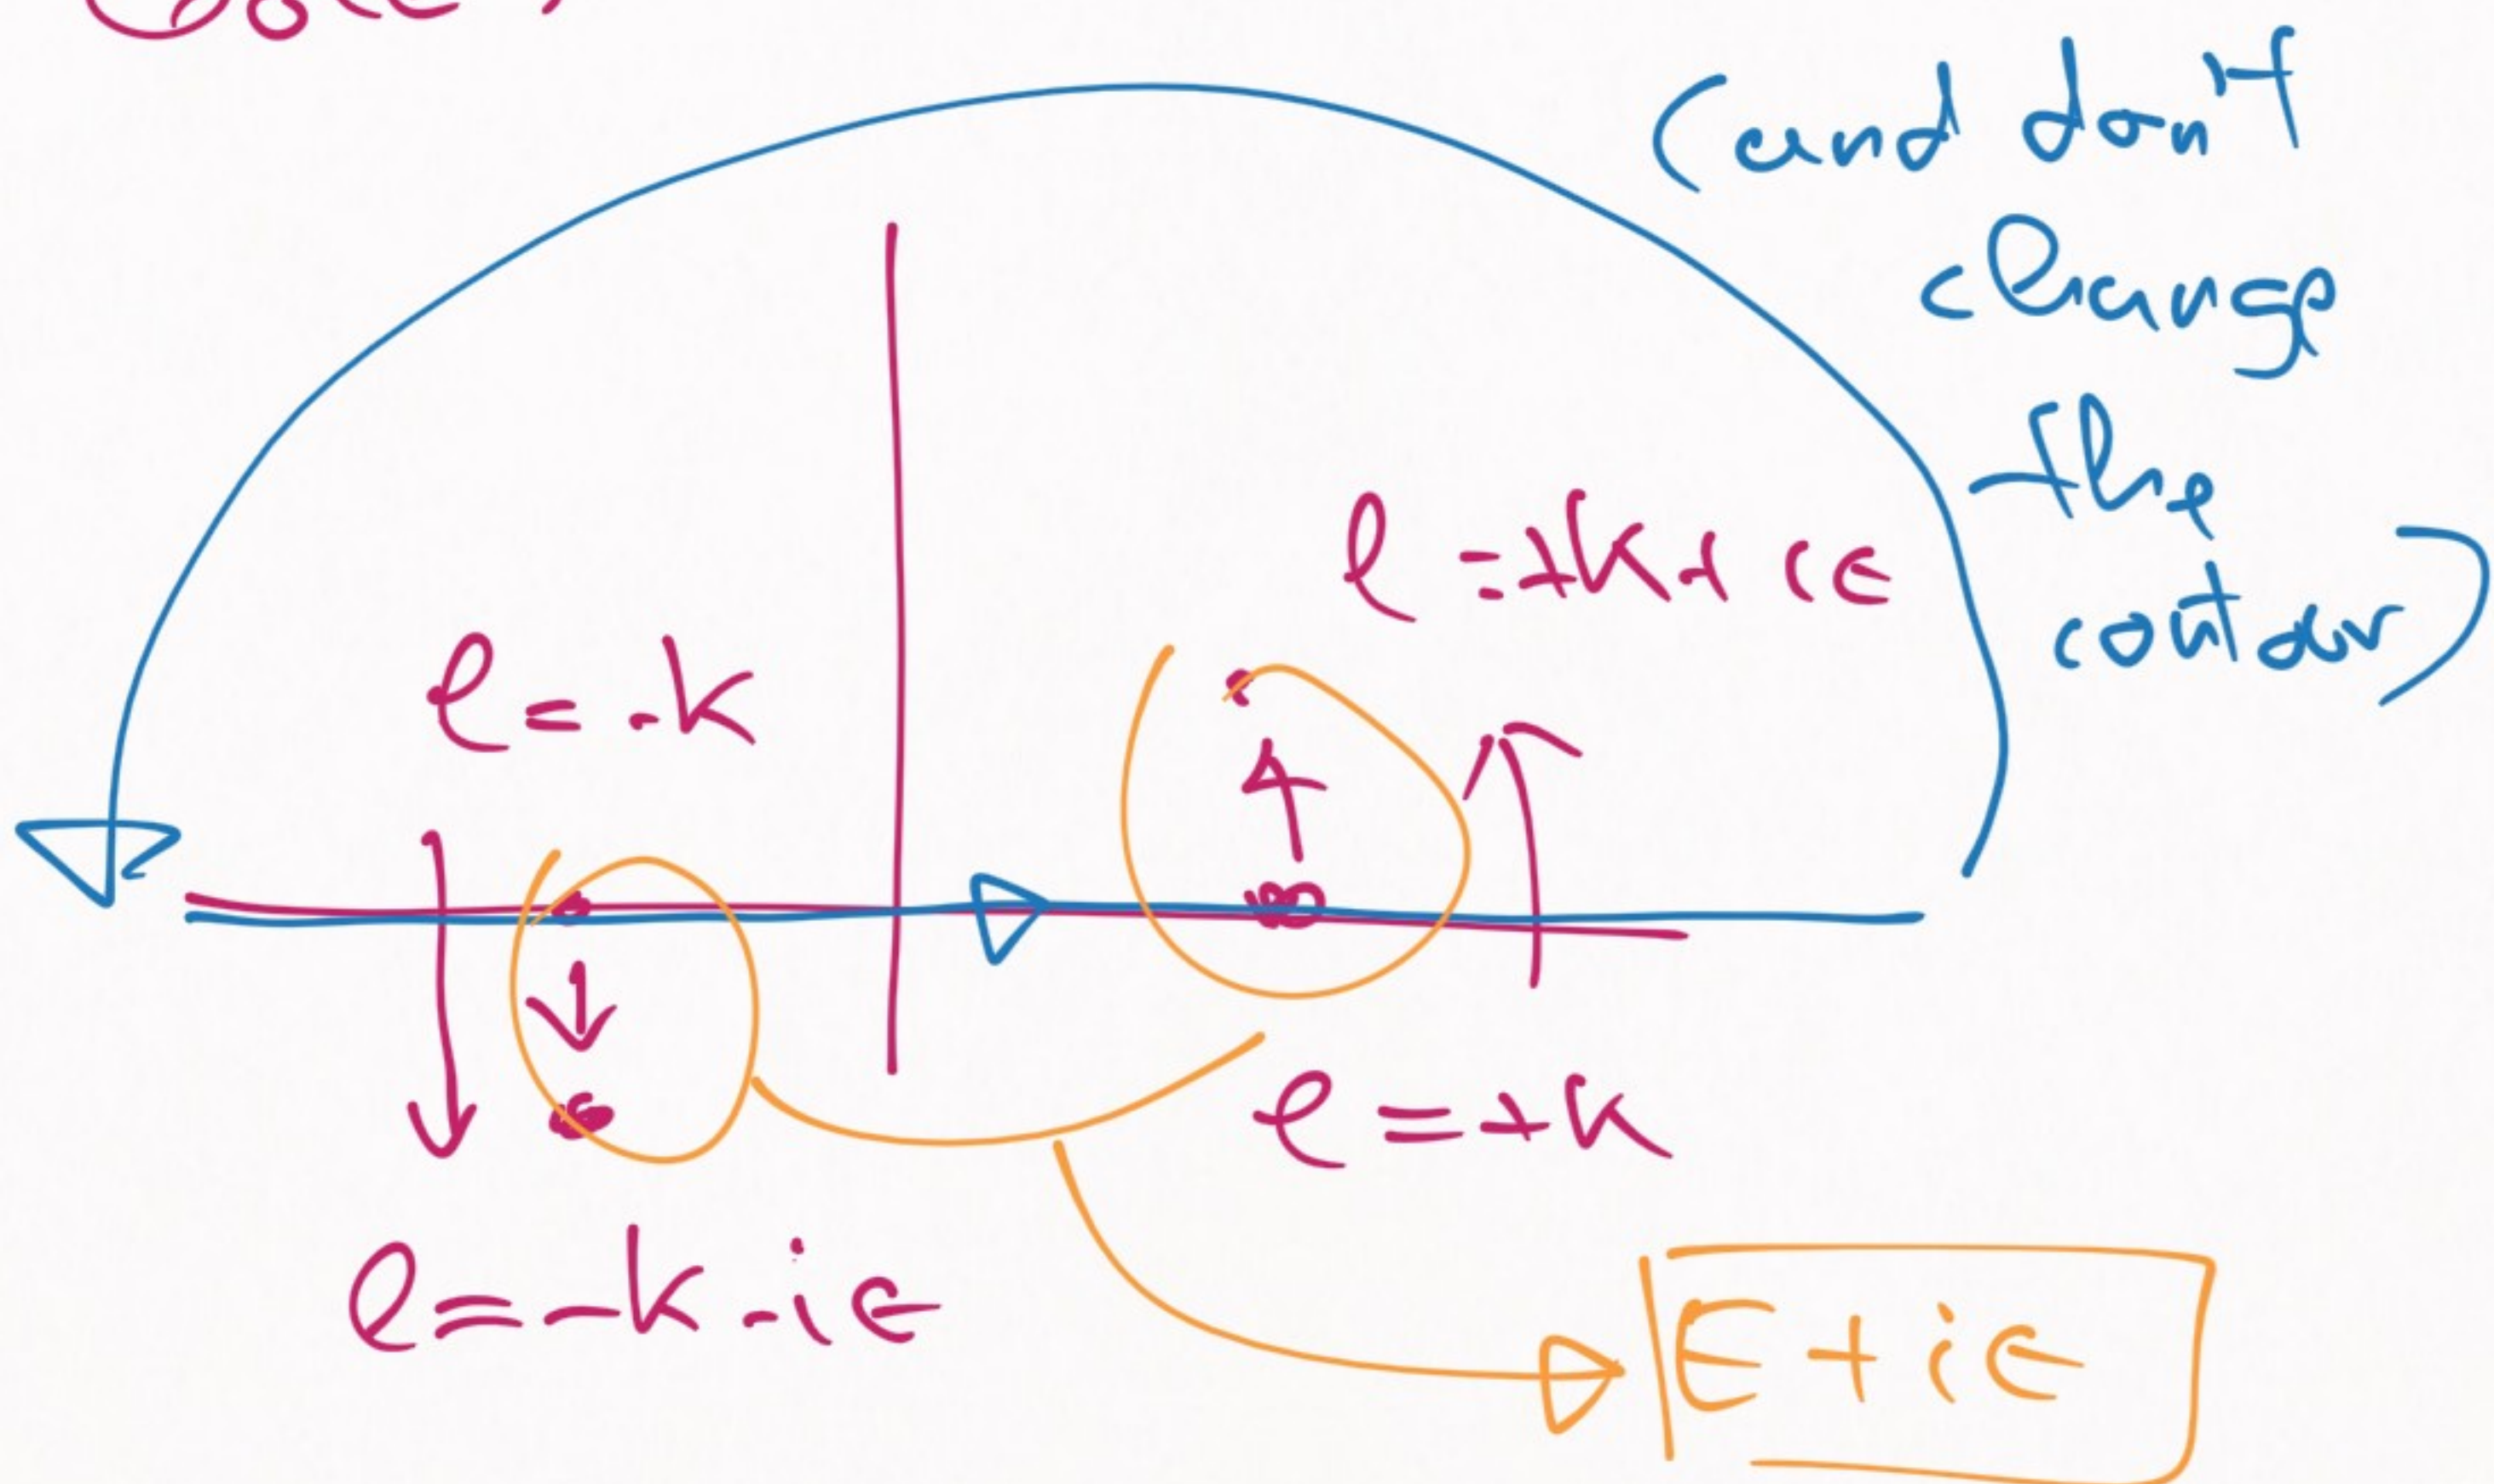 (and don't
change
the
contour)
l = +k + iε
l = -k
l = +k
l = -k - iε
E + iε